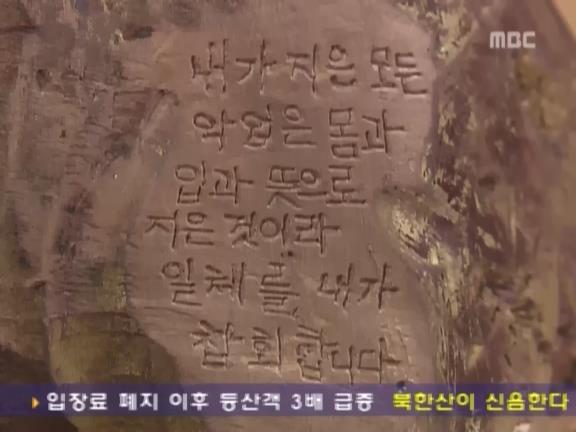 MBC
내가 지은 모든
악업은 몸과
입과 뜻으로
지은 것이라
일체를 내가
참회합니다
입장료 폐지 이후 등산객 3배 급증 북한산이 신음한다